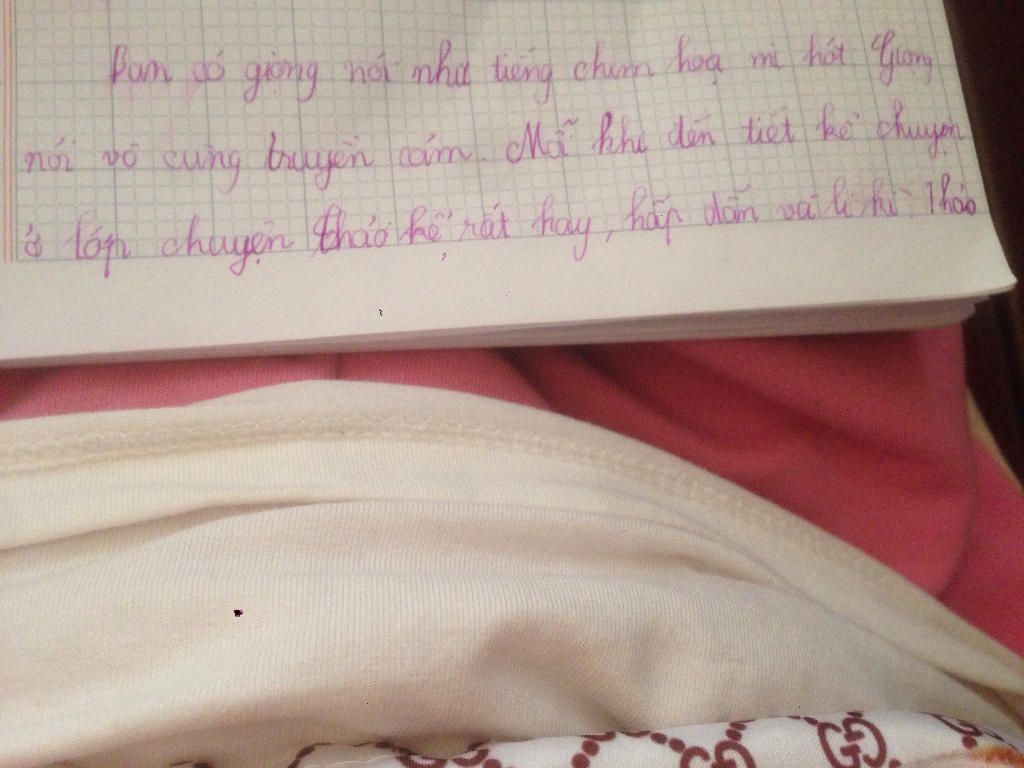 Bạn có giọng nói như tiếng chim hoạ mi hót. Giọng
nói vô cùng truyền cảm. Mỗi khi đến tiết kể chuyện
ở lớp chuyện, thảo kể rất hay, hấp dẫn và li kì. Thảo